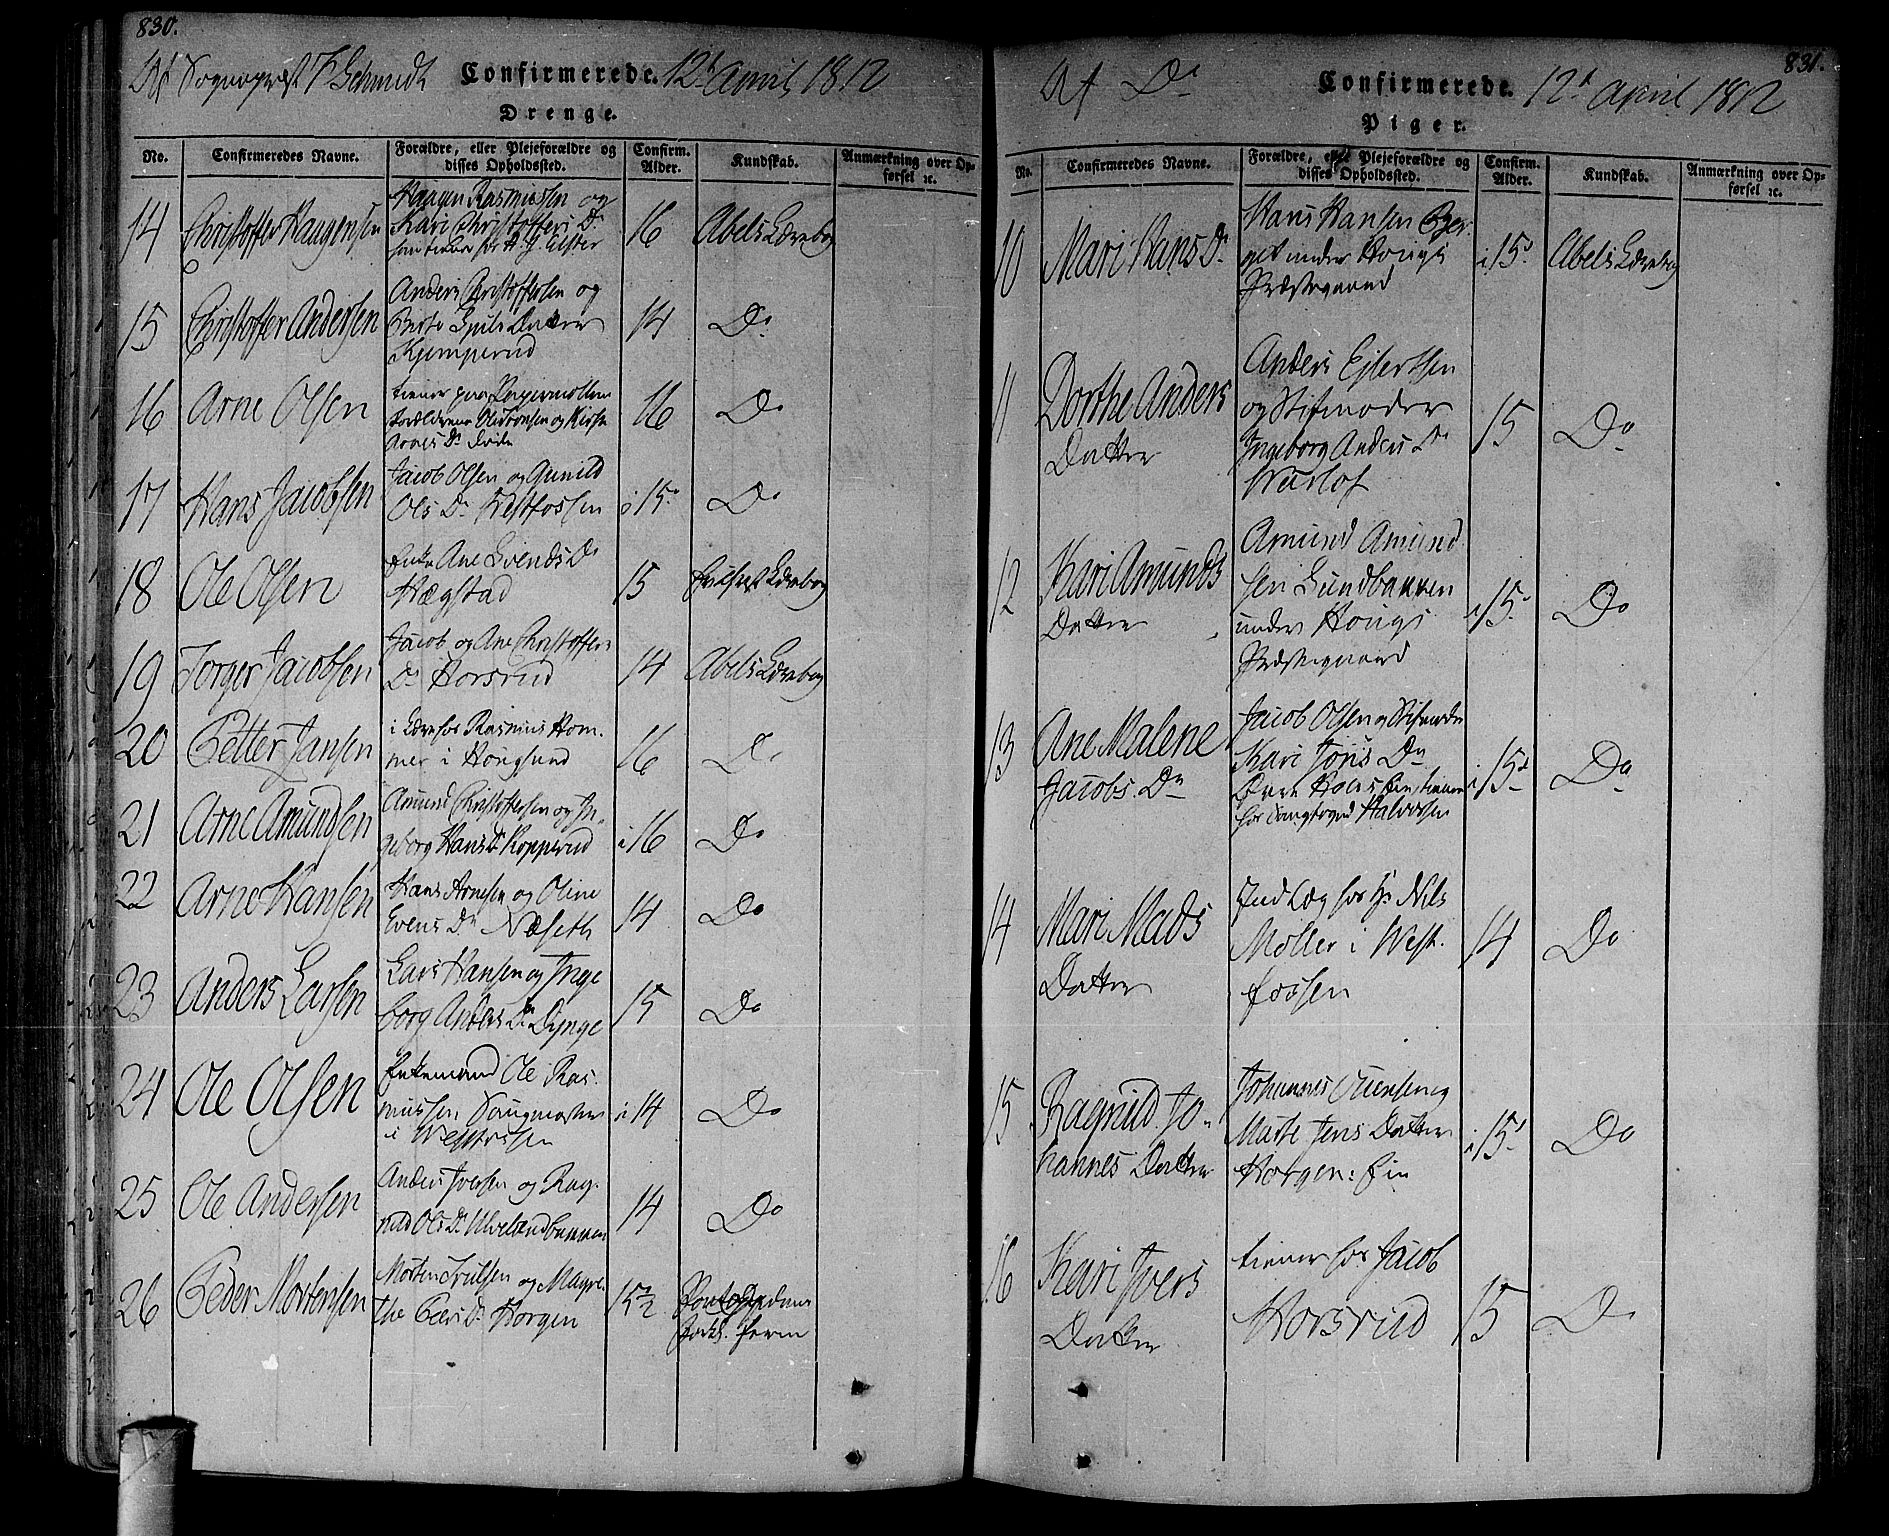 830.
Af Sognepræst F Schmidt Confirmerede. 12t April 1812
Drenge.
No. Confirmeredes Navne. Forældre, eller Plejeforældre og disses Opholdssted. Confirm. Alder. Kundskab. Anmærkning over Opførsel ꝛc.
14 Christoffer Haagensen
Haagen Rasmussen og
Kari Christoffers Dr
16 Abels Lærebog
15 Christoffer Andersen
Anders Christoffersen og
Datter
Kjemperud
14 Do
16 Arne Olsen
tiener paa Papiermøllen
Forældrene og Kirstn
Arnes Dr
16 Do
17 Hans Jacobsen
Jacob Olsen og Gunild
Ols Dr Vestfossen
i 15 Do
18 Ole Olsen
Enke Ane Svends Dr
Hægstad
15 Lærebog
19 Torger Jacobsen
Jacob og Ane Christoffers
Dr Horsrud
14 Abels Lærebog
20 Petter Jansen
i Lære for Rasmus Hom-
mer i Hougsund
16 Do
21 Arne Amundsen
Amund Christoffersen og In-
geborg Hans Dr Kopperud
i 16 Do
22 Arne Hansen
Hans Arnesen og Oline
Evens Dr Næseth
14 Do
23 Anders Larsen
Lars Hansen og Inge
borg Anders Dr Dynge
15 Do
24 Ole Olsen
Enkemand Ole Ras-
mussen Saugmester
i Westfossen
i 14 Do
25 Ole Andersen
Anders Iversen og Rag-
nild Ols Dr Ulvelandbakken
14 Do
26 Peder Mortensen
Morten Trulsen og Magre-
the Peers Dr Horgen
15½ Pontoppidans
Forkl.
831.
Af Do Confirmerede. 12t April 1812
Piger.
No. Confirmeredes Navne. Forældre, eller Plejeforældre og disses Opholdssted. Confirm. Alder. Kundskab. Anmærkning over Opførsel ꝛc.
10 Mari Hans Dr
Hans Hansen
under Hougs
Præstegaard
i 15 Abels Lærebog
11 Dorthe Anders
Datter
Anders Ejlertsen
og Stifmoder
Ingeborg Anders Dr
15 Do
12 Kari Amunds
Datter
Amund Amund
sen Lundbakken
under Hougs
Præstegaard
i 15 Do
13 Ane Malene
Jacobs Dr
Jacob Olsen og Stifmoder
Kari Dr
tiener
for Halvorsen
i 15 Do
14 Mari Mads
Datter
Ind Læg hos Hr Nils
Møller i West-
fossen
14 Do
15 Ragnild Jo-
hannes Datter
Johannes og
Marte Jens Datter
Horgen: Eie
i 15 Do
16 Kari Ivers
Datter
tiener hos Jacob
Horsrud
15 Do